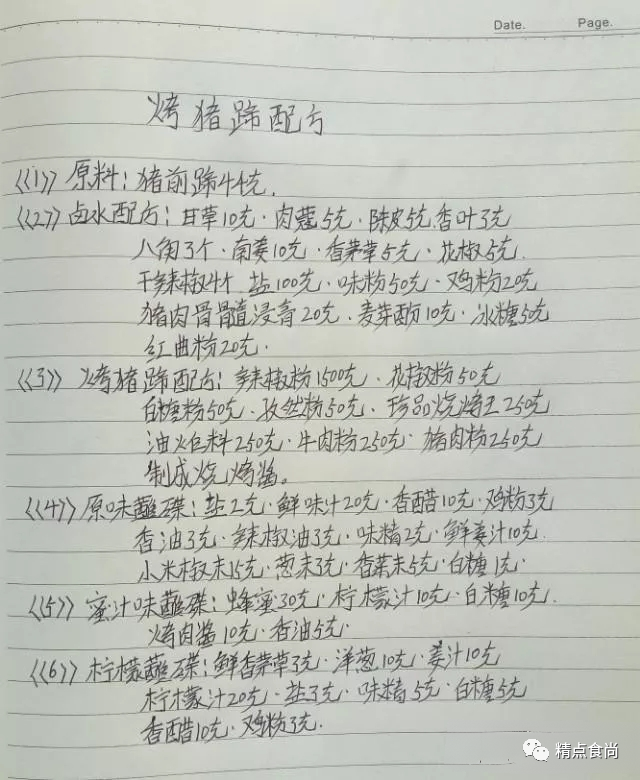 Date. Page.
烤猪蹄配方
《1》原料:猪前蹄44克.
《2》卤水配方:甘草10克·肉蔻5克·陈皮5克 香叶3克
八角3个·南姜10克·香茅草5克·花椒5克.
干辣椒4个 盐100克·味粉50克·鸡粉20克
猪肉骨骨髓浸膏20克·麦芽酚10克·冰糖5克
红曲粉20克.
《3》烤猪蹄配方:辣椒粉1500克·花椒粉50克
白糖粉50克·孜然粉50克·珍品烧烤王250克
油焰料250克·牛肉粉250克·猪肉粉250克
制成烧烤酱。
《4》原味蘸碟:盐2克·鲜味汁20克·香醋10克·鸡粉3克
香油3克·辣椒油3克·味精2克·鲜姜汁10克.
小米椒末15克·葱末3克·香菜末5克·白糖1克·
《5》蜜汁味蘸碟:蜂蜜30克·柠檬汁10克·白糖10克.
烤肉酱10克·香油5克·
《6》柠檬蘸碟:鲜香茅草3克·洋葱10克·姜汁10克
柠檬汁20克·盐3克·味精5克·白糖5克
香醋10克·鸡粉3克.
精点食尚